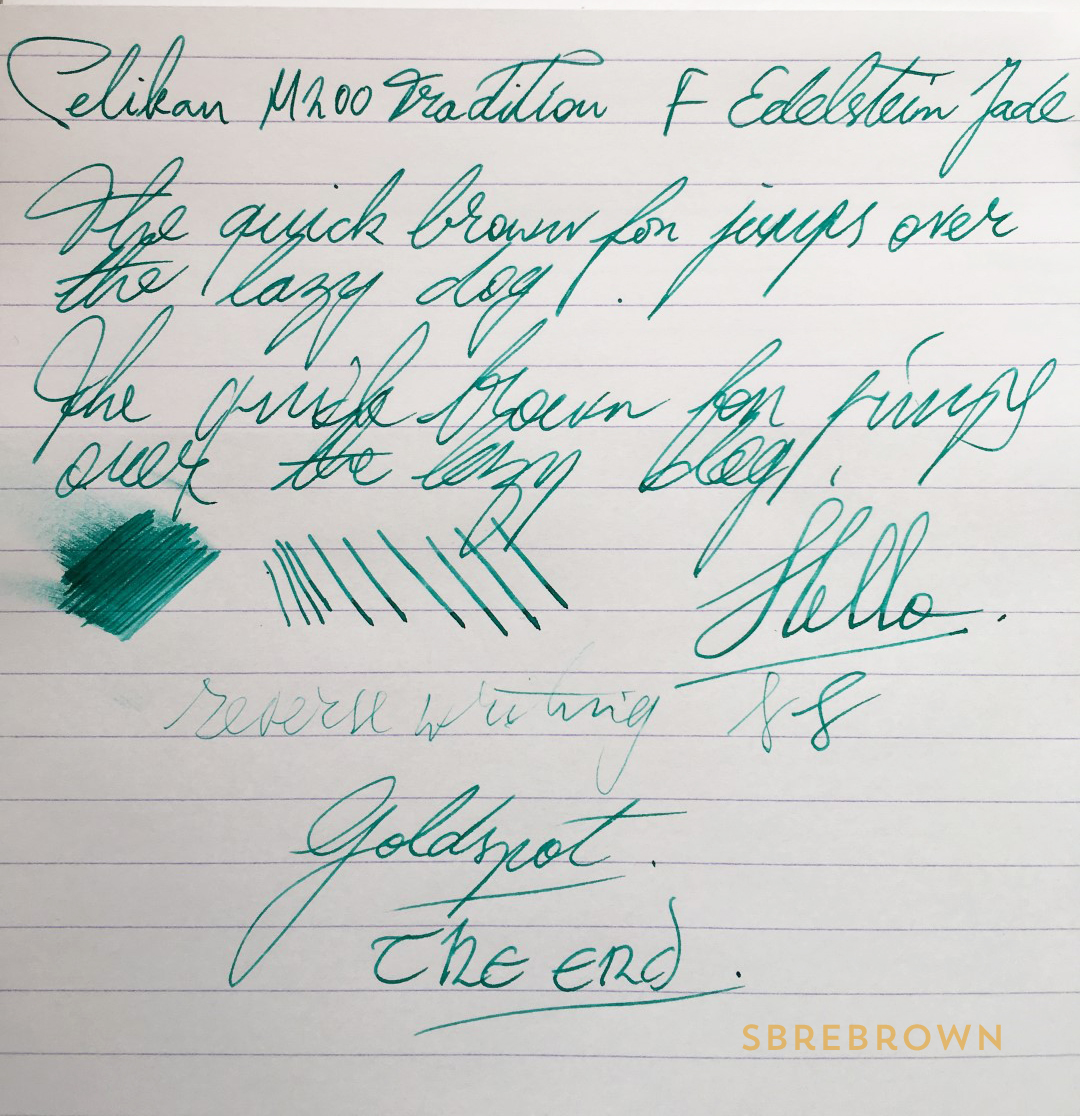 Pelikan M200 Tradition F Edelstein Jade
The quick brown fox jumps over
the lazy dog.
The quick brown fox jumps
over the lazy dog.
Hello.
reverse writing 8 8
Goldspot.
The End.
SBREBROWN